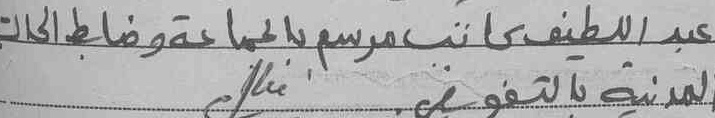 عبد اللطيف كاتب مرسم بالجماعة وضابط الحالة
المدنية بالتفويض.